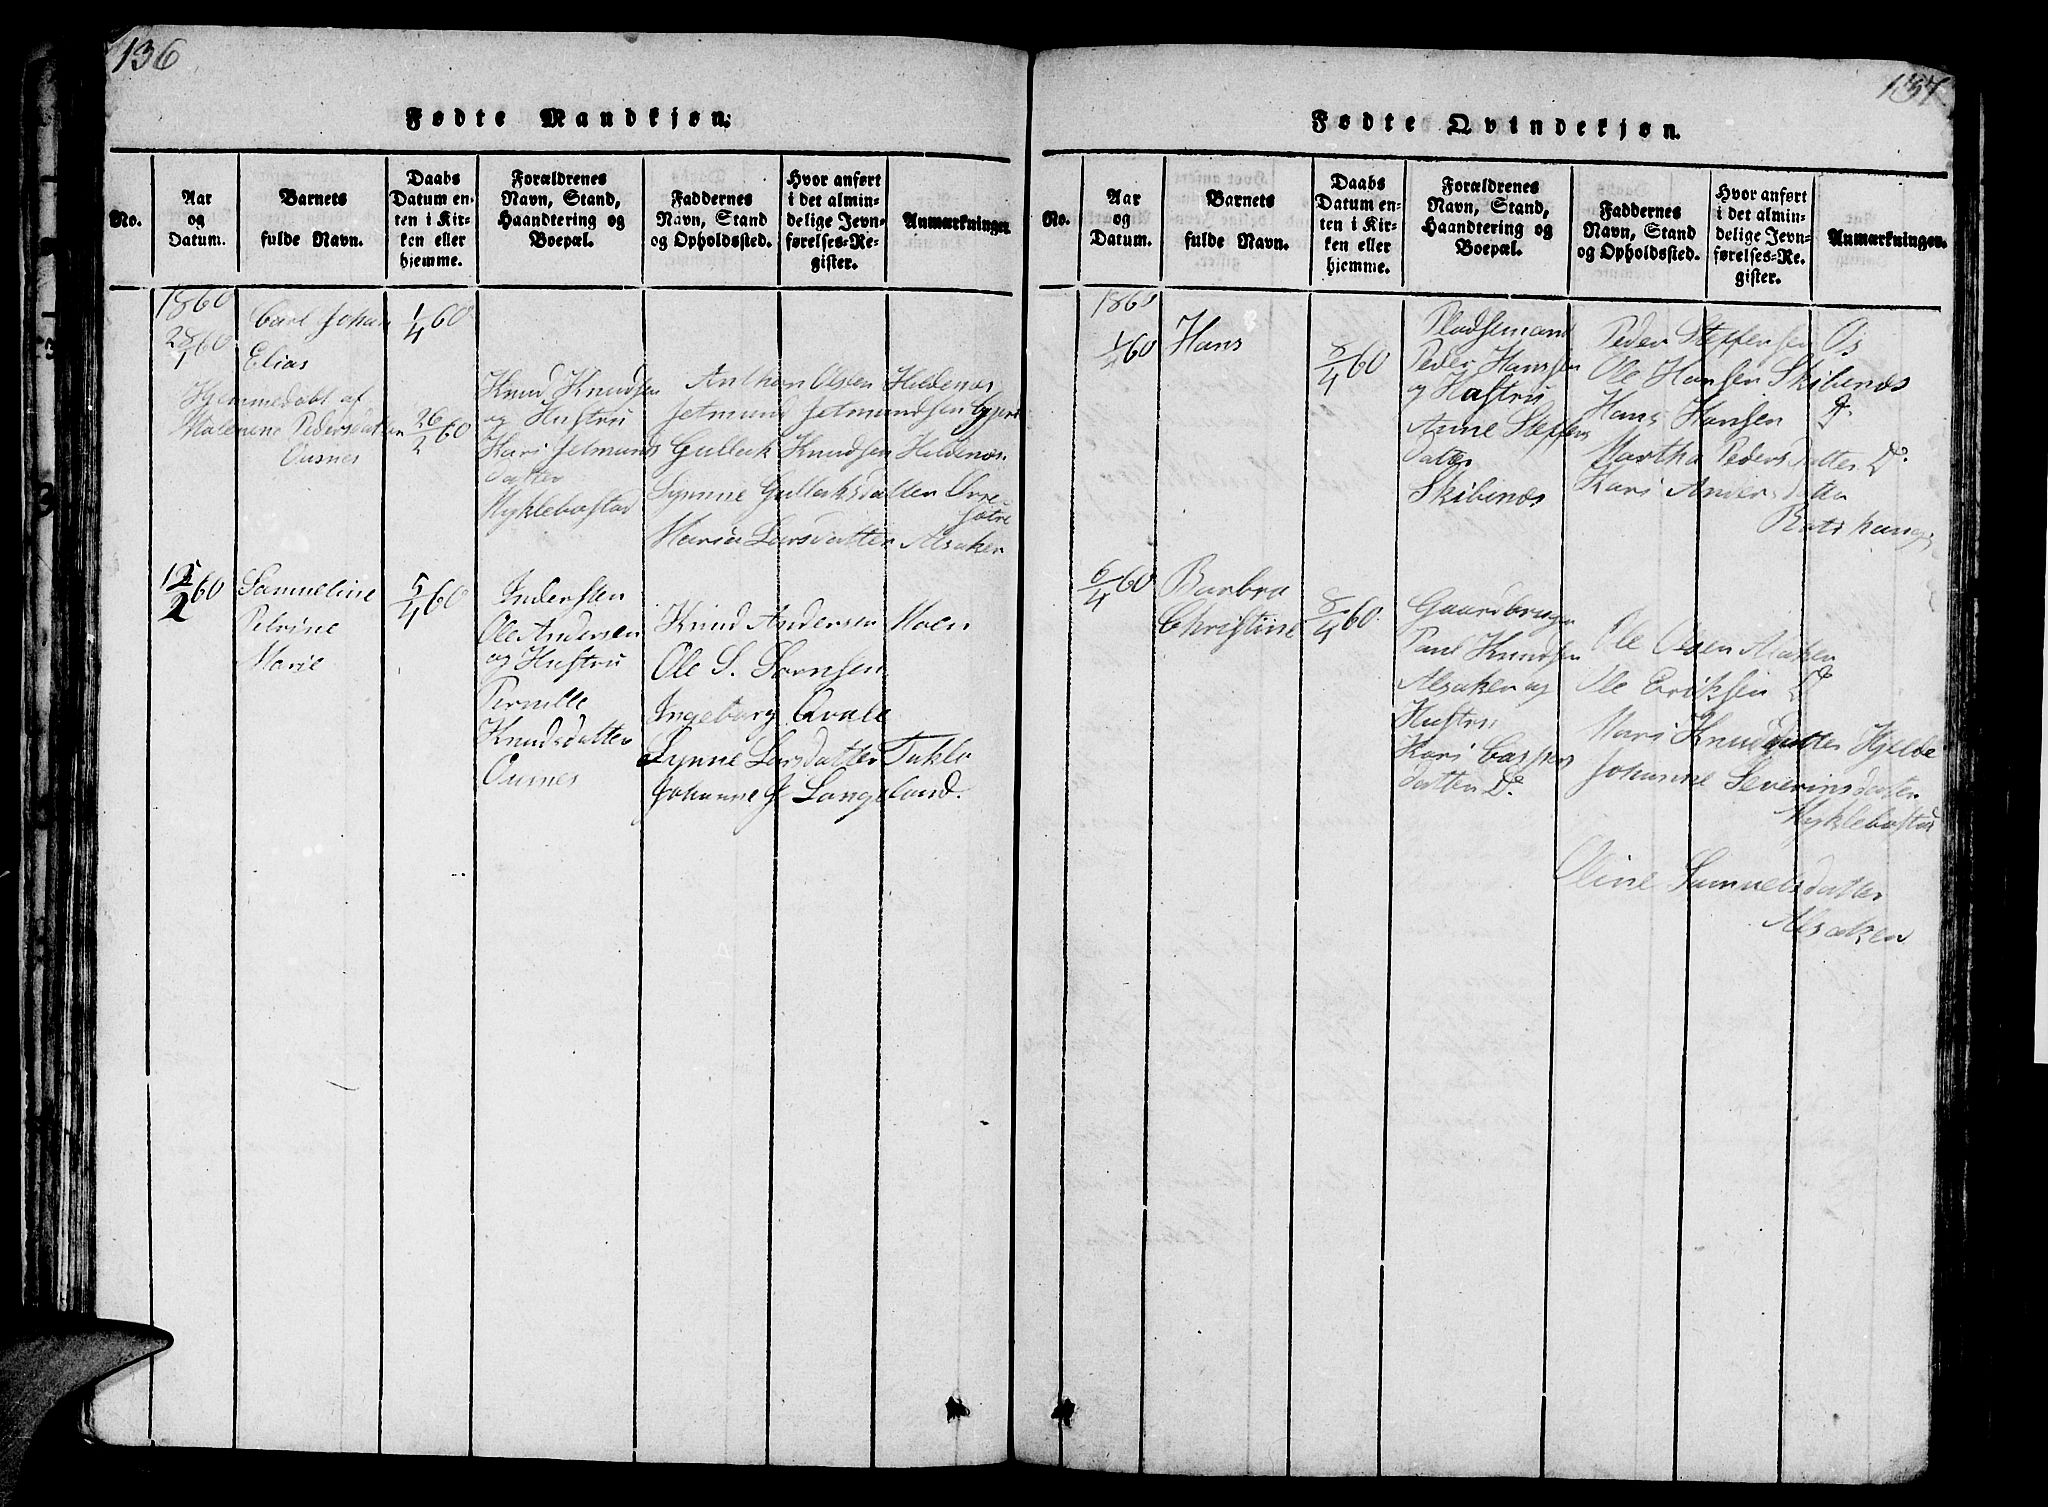 136
Fødte Mandkjøn.
No.
Aar
og
Datum.
Barnets
fulde Navn.
Daabs
Datum en-
ten i Kir-
ken eller
hjemme.
Forældrenes
Navn, Stand,
Haandtering og
Boepæl.
Faddernes
Navn, Stand
og Opholdssted.
Hvor anført
i det almin-
delige Jevn-
førelses-Re-
gister.
Anmærkninger
1860
28/1 60
Carl Johan
Elias
Hjemmedøbt af
Malenene Pedersdatter
Ousnes
1/4 60
26/2 60
Knud Knudsen
og Hustru
Kari Jetmunds
datter
Myklebostad
Anthon Olsen Hildenæs
Jetmund Jetmundsen
Gullak Knudsen Hildenæs
Synnne Gullaksdatter
Maria Larsdatter Alsaker
12/2 60
Samueline
Petrine
Marie
5/4 60
Indersten
Ole Andersen
og Hustru
Pernille
Knudsdatter
Ousnes
Knud Andersen Moen
Ole S. Sørnsen
Ingeborg Qvale
Synne Larsdatter Taklo
Johanne J Langeland.
137
Fødte Qvindekjøn.
No.
Aar
og
Datum.
Barnets
fulde Navn.
Daabs
Datum en-
ten i Kir-
ken eller
hjemme.
Forældrenes
Navn, Stand,
Haandtering og
Boepæl.
Faddernes
Navn, Stand
og Opholdssted.
Hvor anført
i det almin-
delige Jevn-
førelses-Re-
gister.
Anmærkninger.
1860
60
Hans
8/4 60
Pladsemand
Peder Hanssen
og Hustru
Anne Steffens
datter
Skibenæs
Peder Steffensen Os
Ole Hansen Skibenæs
Hans Hansen
Martha Pedersdatter Do
Kari Andersdatter
6/4 60
Barbra
Christine
8/4 60.
Gaardbruger
Paul Knudsen
Alsaker og
Hustru
Kari Caspers
datter Do
Ole Olsen Alsaker
Ole Eriksen Do
Mari Knudsdatter Hjelle
Johanne Severinsdatter
Myklebostad
Oline Samuelsdatter
Alsaker